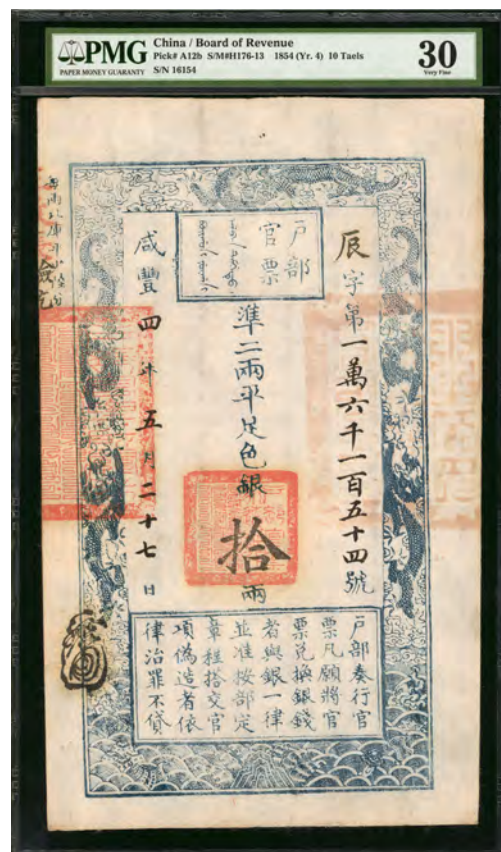 PMG
PAPER MONEY GUARANTY
China / Board of Revenue
Pick# A12b S/M#H176-13 1854 (Yr. 4) 10 Taels
S/N 16154
30
Very Fine
戶部
官票
辰字第一萬六千一百五十四號
準二兩平足色銀拾兩
咸豐四年五月二十七日
戶部奏行官
票凡願將官
票兌換銀錢
者與銀一律
並准按部定
章程搭交官
項偽造者依
律治罪不貸